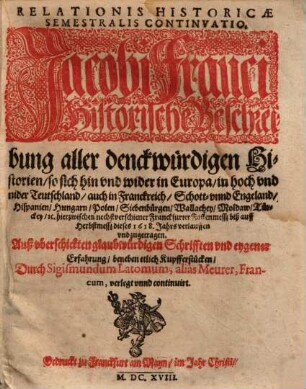 RELATIONIS HISTORICÆ
SEMESTRALIS CONTINVATIO,
Jacobi Franci
Historische Beschrei
bung aller denckwürdigen Hi-
storien/ so sich hin vnd wider in Europa/ in hoch vnd
nider Teutschland/ auch in Franckreich/ Schott- vnnd Engeland/
Hispanien/ Hungarn/ Polen/ Siebenbürgen/ Wallachey/ Moldaw/ Tür-
ckey/ ıc. hierzwischen nechstverschiener Franckfurter Fastenmeß biß auff
Herbstmeß dieses 1618. Jahrs verlauffen
vnd zugetragen.
Auß vberschickten glaubwürdigen Schrifften vnd eygener
Erfahrung/ beneben etlich Kupfferstücken/
Durch Sigismundum Latomum, aliàs Meurer, Fran-
cum, verlegt vnnd continuirt.
Gedruckt zu Franckfurt am Mayn/ im Jahr Christi/
M. DC. XVIII.